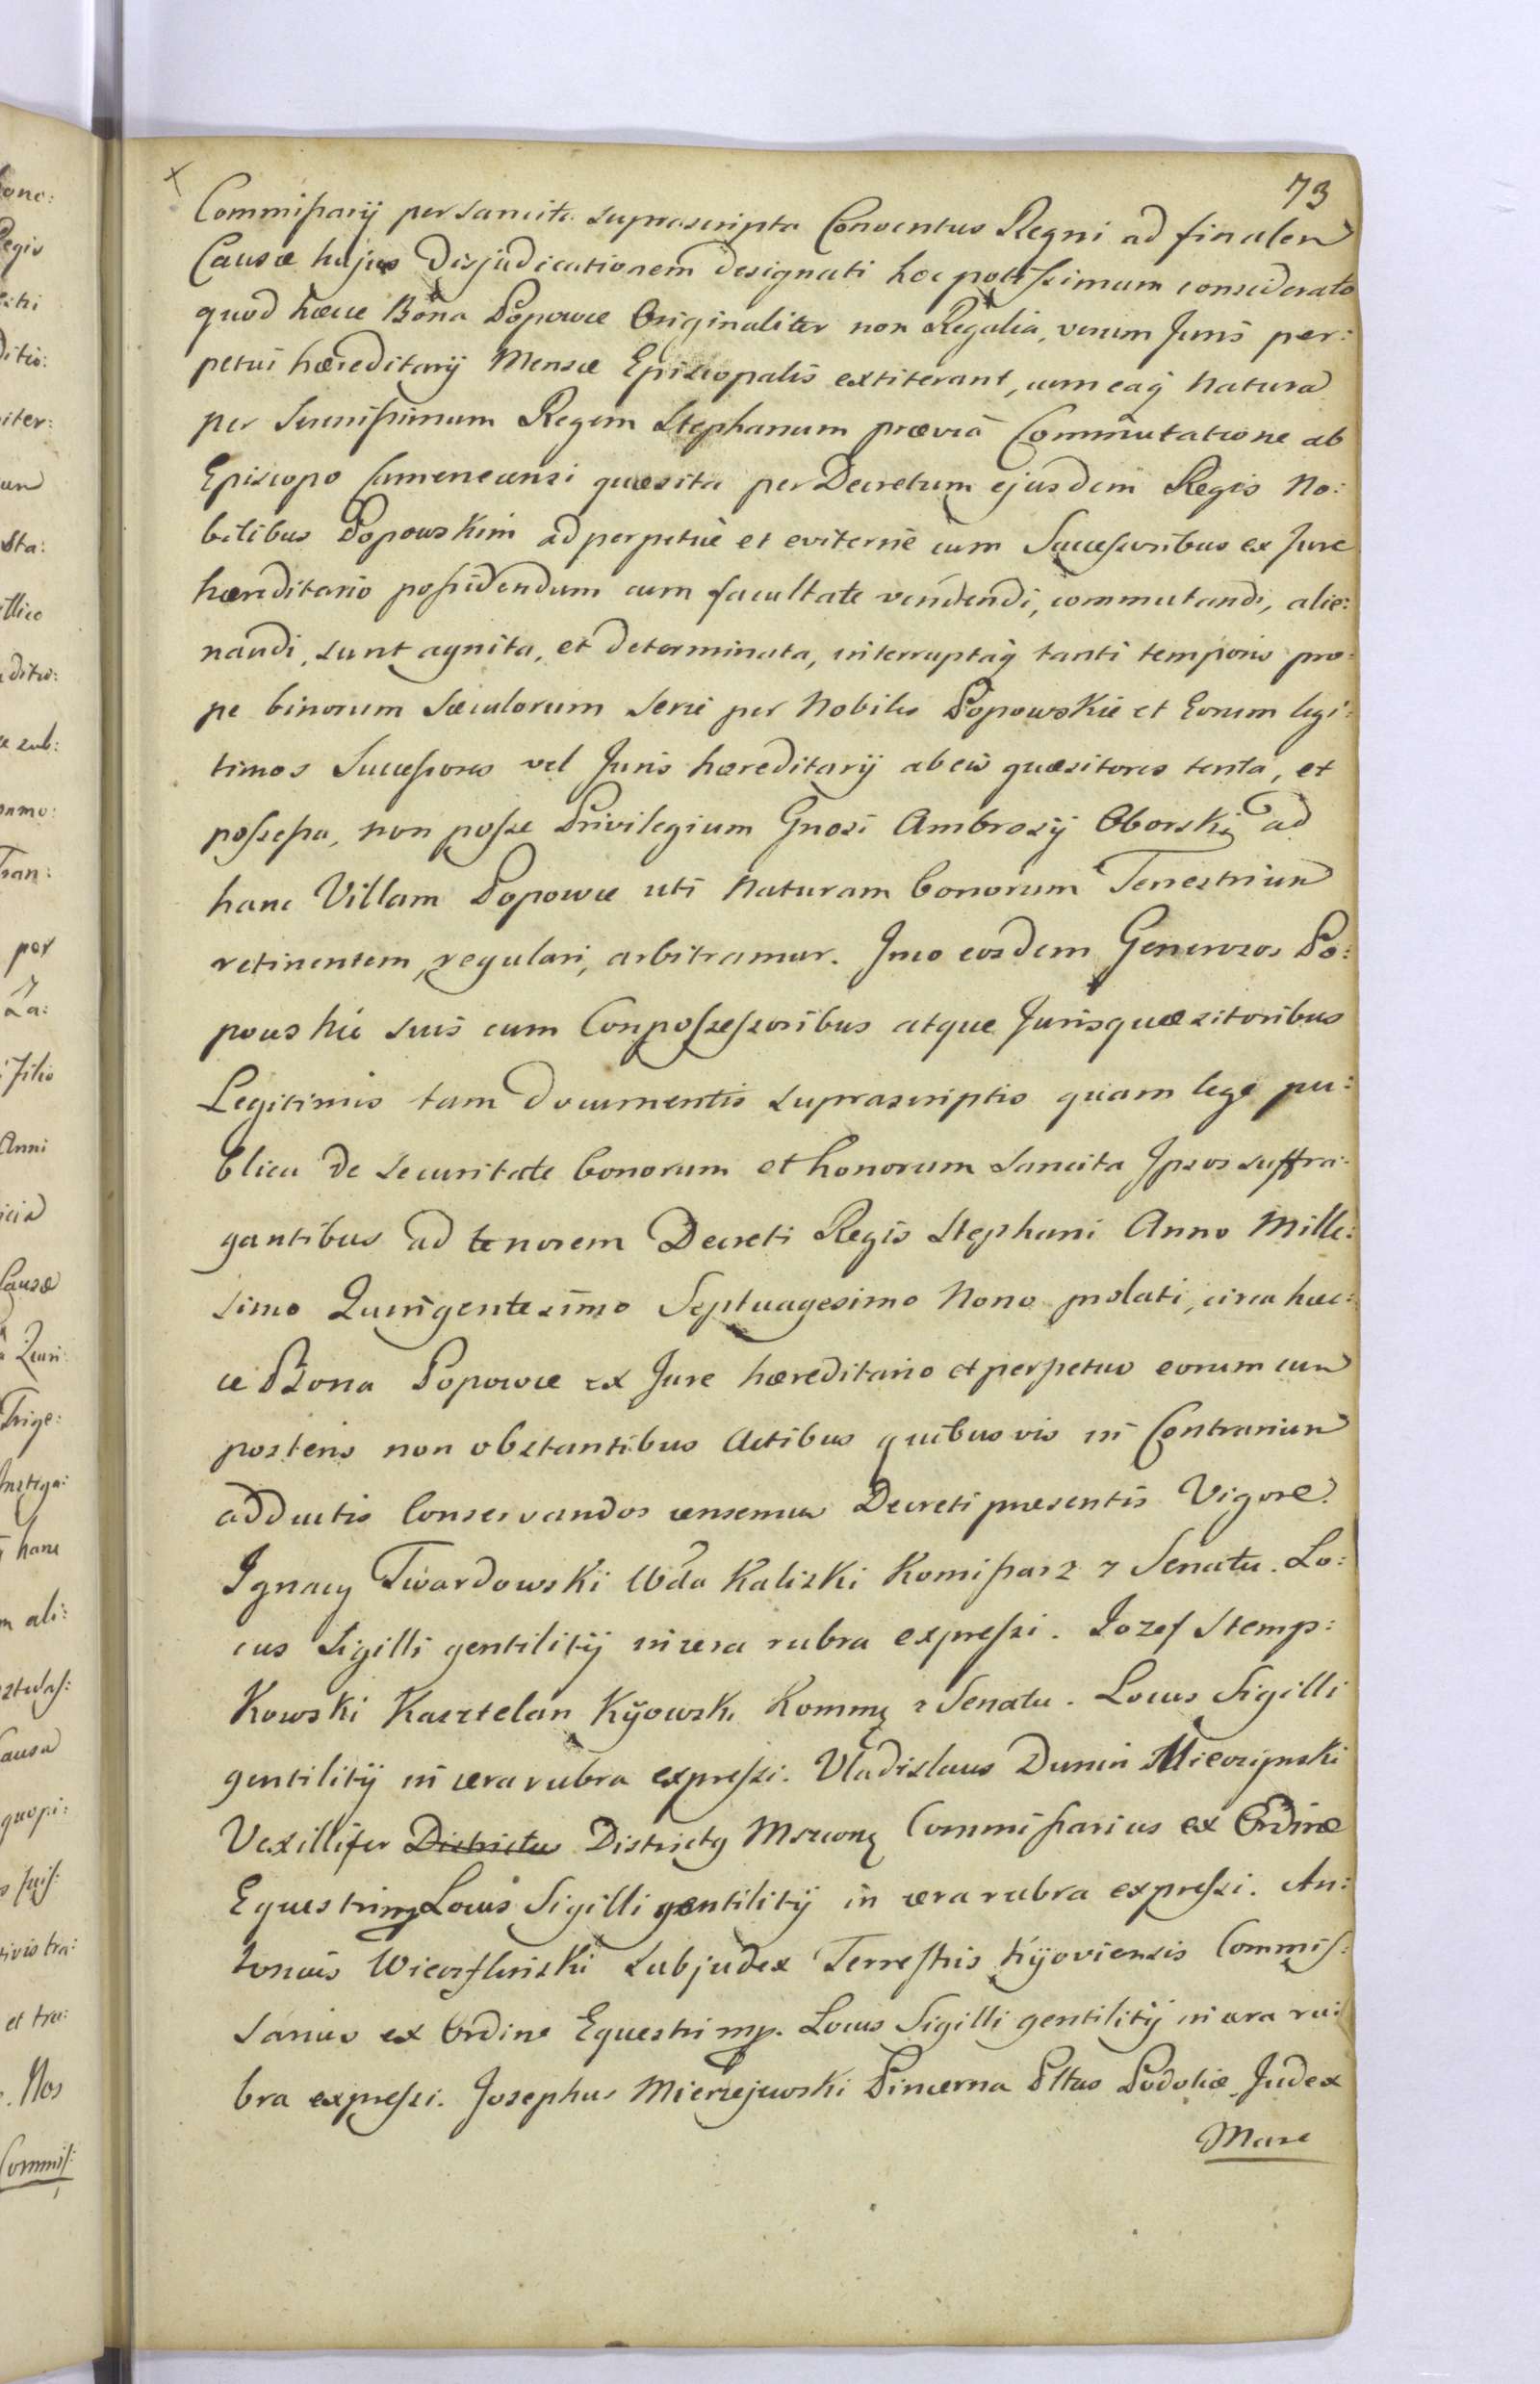 73
Commissarij per sancita suprascripta Conventus Regni ad finalem
Causæ hujus Disjudicationem designati hoc potissimum considerato
quod hæcce Bona Popowce Originaliter non Regalia, verum Juris per:
petui hæreditarij Mensæ Episcopalis extiterant, cum eaq̃ Natura
per Serenissimum Regem Stephanum præviâ Commutatione ab
Episcopo Camenecensi quæsita per Decretum ejusdem Regis No:
bilibus Popowskim ad perpetue et eviterne cum Successoribus ex Jure
hæreditario possidendum cum facultate vendendi, commutandi, alie:
nandi, sunt agnita, et determinata, interruptaq̃ tanti temporis pro:
pe binorum Sæculorum Serie per Nobiles Popowskie et Eorum legi:
timos Successores vel Juris hæreditarij ab eis quæsitores tenta, et
possessa, non posse Privilegium Gnosi Ambrosij Oborski ad
hanc Villam Popowce uti Naturam bonorum Terrestrium
retinentem, regulari, arbitramur. Imo eosdem Generosos Po:
powskie suis cum Conpossessoribus atque Jurisquæsitoribus
Legitimis tam Documentis suprascriptis quam lege pu:
blica de securitate bonorum et honorum sancita Ipsos suffra:
gantibus ad tenorem Decreti Regis Stephani Anno Mille:
simo Quingentesimo Septuagesimo Nono prolati, circa hæc:
ce Bona Popowce ex Jure hæreditario et perpetuo eorum cum
posteris non obstantibus Actibus quibusvis in Contrarium
adductis Conservandos censemus Decreti præsentis Vigore.
Ignacy Twardowski Wda Kaliski Komissarz z Senatu. Lo:
cus Sigilli gentilitij in cera rubra expressi. Jozef Stemp:
kowski Kasztelan Kijowski Kommz z Senatu. Locus Sigilli
gentilitij in cera rubra expressi. Vladislaus Dunin Mieczynski
Vexillifer Districtus Districtq Mscong Commissarius ex Ordine
Equestri mp Locus Sigilli gentilitij in cera rubra expressi. An:
tonius Wieczfliński Subjudex Terrestris Kijoviensis Commis:
sarius ex Ordine Equestri mp. Locus Sigilli gentilitij in cera ru:
bra expressi. Josephus Mierzejewski Pincerna Pltus Podoliæ Judex